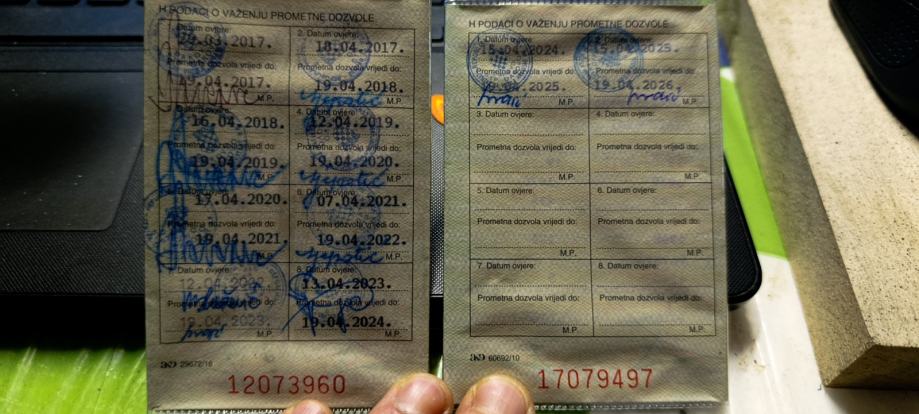 H PODACI O VAŽENJU PROMETNE DOZVOLE
1. Datum ovjere: 2. Datum ovjere:
2017. 18.04.2017.
Prometna dozvola vrijedi do: Prometna dozvola vrijedi do:
19.04.2017. 19.04.2018.
M.P. M.P.
Datum ovjere: 4. Datum ovjere:
16.04.2018. 12.04.2019.
Prometna dozvola vrijedi do: Prometna dozvola vrijedi do:
19.04.2019. 19.04.2020.
M.P. M.P.
Datum ovjere: 6. Datum ovjere:
17.04.2020. 07.04.2021.
Prometna dozvola vrijedi do: Prometna dozvola vrijedi do:
19.04.2021. 19.04.2022.
M.P. M.P.
Datum ovjere: 8. Datum ovjere:
12.04. 13.04.2023.
Prometna dozvola vrijedi do: Prometna dozvola vrijedi do:
19.04.2023. 19.04.2024.
M.P. M.P.
12073960
H PODACI O VAŽENJU PROMETNE DOZVOLE
1. Datum ovjere: 2. Datum ovjere:
15.04.2024. 15.04.2025.
Prometna dozvola vrijedi do: Prometna dozvola vrijedi do:
19.04.2025. 19.04.2026.
M.P. M.P.
3. Datum ovjere: 4. Datum ovjere:
Prometna dozvola vrijedi do: Prometna dozvola vrijedi do:
M.P. M.P.
5. Datum ovjere: 6. Datum ovjere:
Prometna dozvola vrijedi do: Prometna dozvola vrijedi do:
M.P. M.P.
7. Datum ovjere: 8. Datum ovjere:
Prometna dozvola vrijedi do: Prometna dozvola vrijedi do:
M.P. M.P.
60692/10
17079497